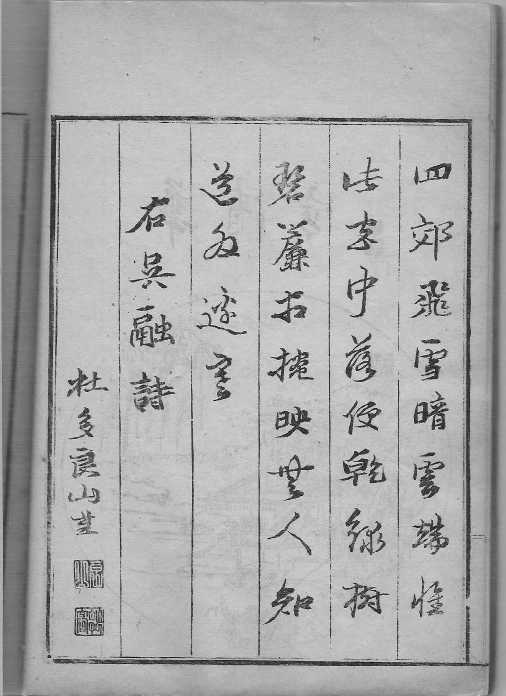 四郊飛雪暗雲端惟
此宮中落便乾綠樹
碧簾相掩映無人知
道外邊寒
右吳融詩
杜多良山